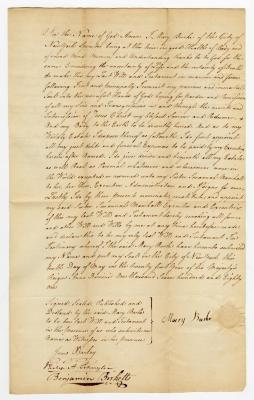 In the Name of God Amen I Mary Burke of the City of
New York Spinster being at this time in good Health of Body and
of sound Mind Memory and Understanding thanks be to God for the
same Considering the uncertainty of Life and the certainty of Death
do make this my Last Will and Testament in manner and form
following First and principally I commit my precious and immortal
Soul into the merciful Hands of God hoping for Pardon and Remission
of all my Sins and Transgressions in and through the merits and
Intercession of Jesus Christ my blessed Saviour and Redeemer
And my Body to the Earth to be decently buried And as to my
Worldly Estate I dispose thereof as followeth to wit first I will
all my just debts and funeral Expences to be paid by my Executrix
herein after Named I give devise and bequeath all my Estate
as well Real as Personal whatsoever and wheresoever none in
the World excepted or reserved unto my Sister Susannah Marshall
to her her Heirs Executors Administrators and Assigns for ever
Lastly I do by these Presents nominate constitute and appoint
my said Sister Susannah Marshall Executrix
of this my last Will and Testament hereby revoking all former
and other Wills and Wills by me at any time heretofore made
and declare this to be my only last Will and Testament In
Testimony whereof I the said Mary Burke have hereunto subscribed
my Name and put my Seal for the City of New York this
tenth Day of May in the twenty first Year of his Majestys
Reign Anno Domini One thousand seven hundred and Eighty
one
Signed Sealed Published and
Declared by the said Mary Burke
to be her last Will and Testament
in the presence of us who subscribe our
Names as Witnesses in her presence
Mary Burke
Benjamin